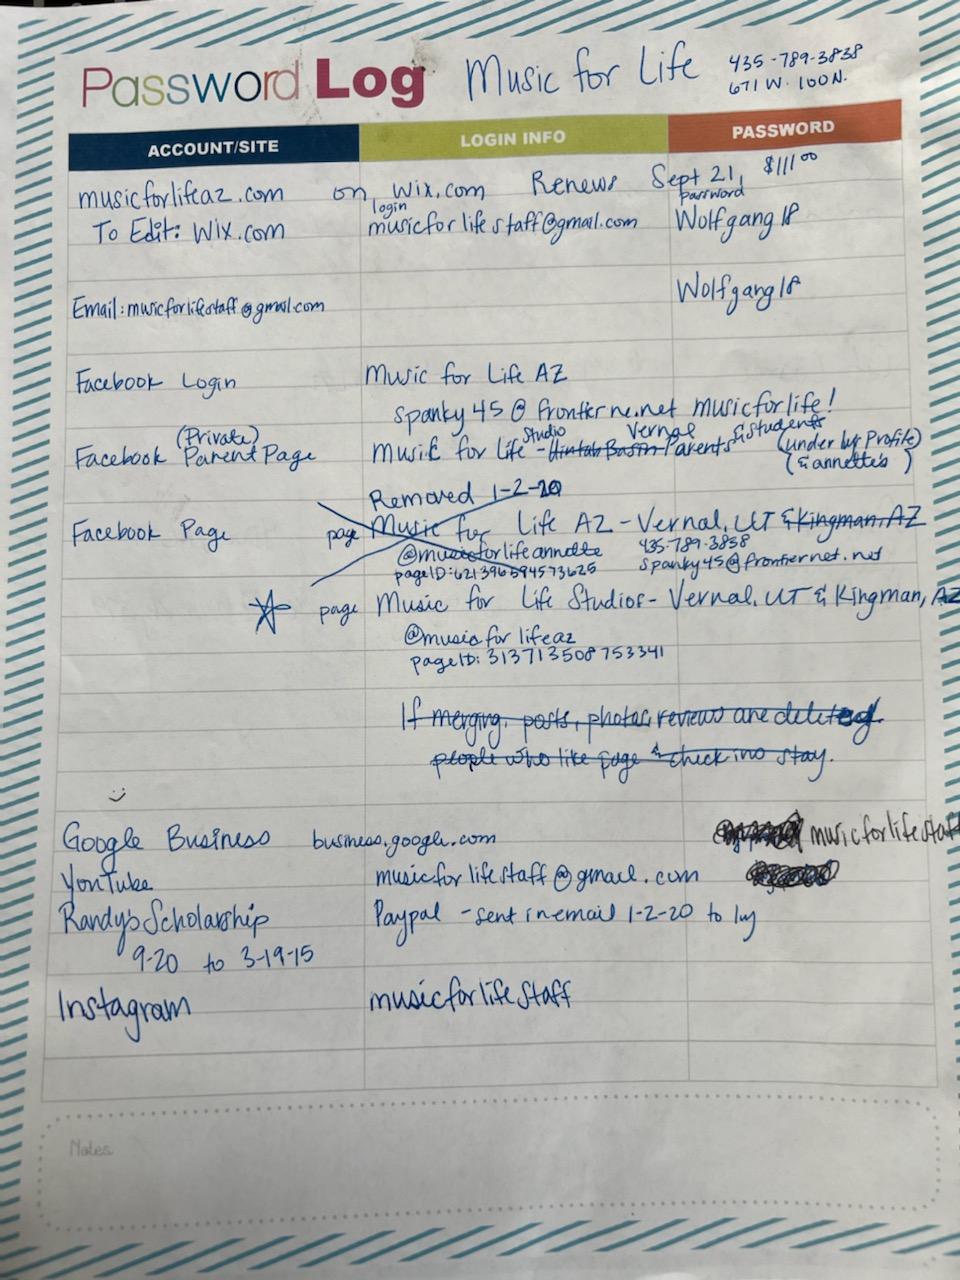 Password Log Music for Life 435-789-3838
671 W. 100N.
ACCOUNT/SITE LOGIN INFO PASSWORD
musicforlifeaz.com on Wix.com Renews Sept 21, $111.00
login password
To Edit: Wix.com musicforlifestaff@gmail.com Wolfgang18
Email: musicforlifestaff@gmail.com Wolfgang18
Facebook Login Music for Life AZ
spanky45@frontiernet.net musicforlife!
(Private) Studio Vernal & Students
Facebook Parent Page Music for Life - Uintah Basin Parents (under by Profile)
(& annette's )
Removed 1-2-20
Facebook Page page Music for Life AZ - Vernal, UT & Kingman, AZ
@musicforlifeannette 435-789-3838
pageID: 621396594573625 spanky45@frontiernet.net
page Music for Life Studios - Vernal, UT & Kingman, AZ
@musicforlifeaz
pageID: 313713508753341
If merging, posts, photos, reviews are deleted.
people who like page & check ins stay.
Google Business business.google.com musicforlifestaff
YouTube musicforlifestaff@gmail.com
Randy's Scholarship Paypal - sent in email 1-2-20 to
9-20 to 3-19-15
Instagram musicforlifestaff
Notes